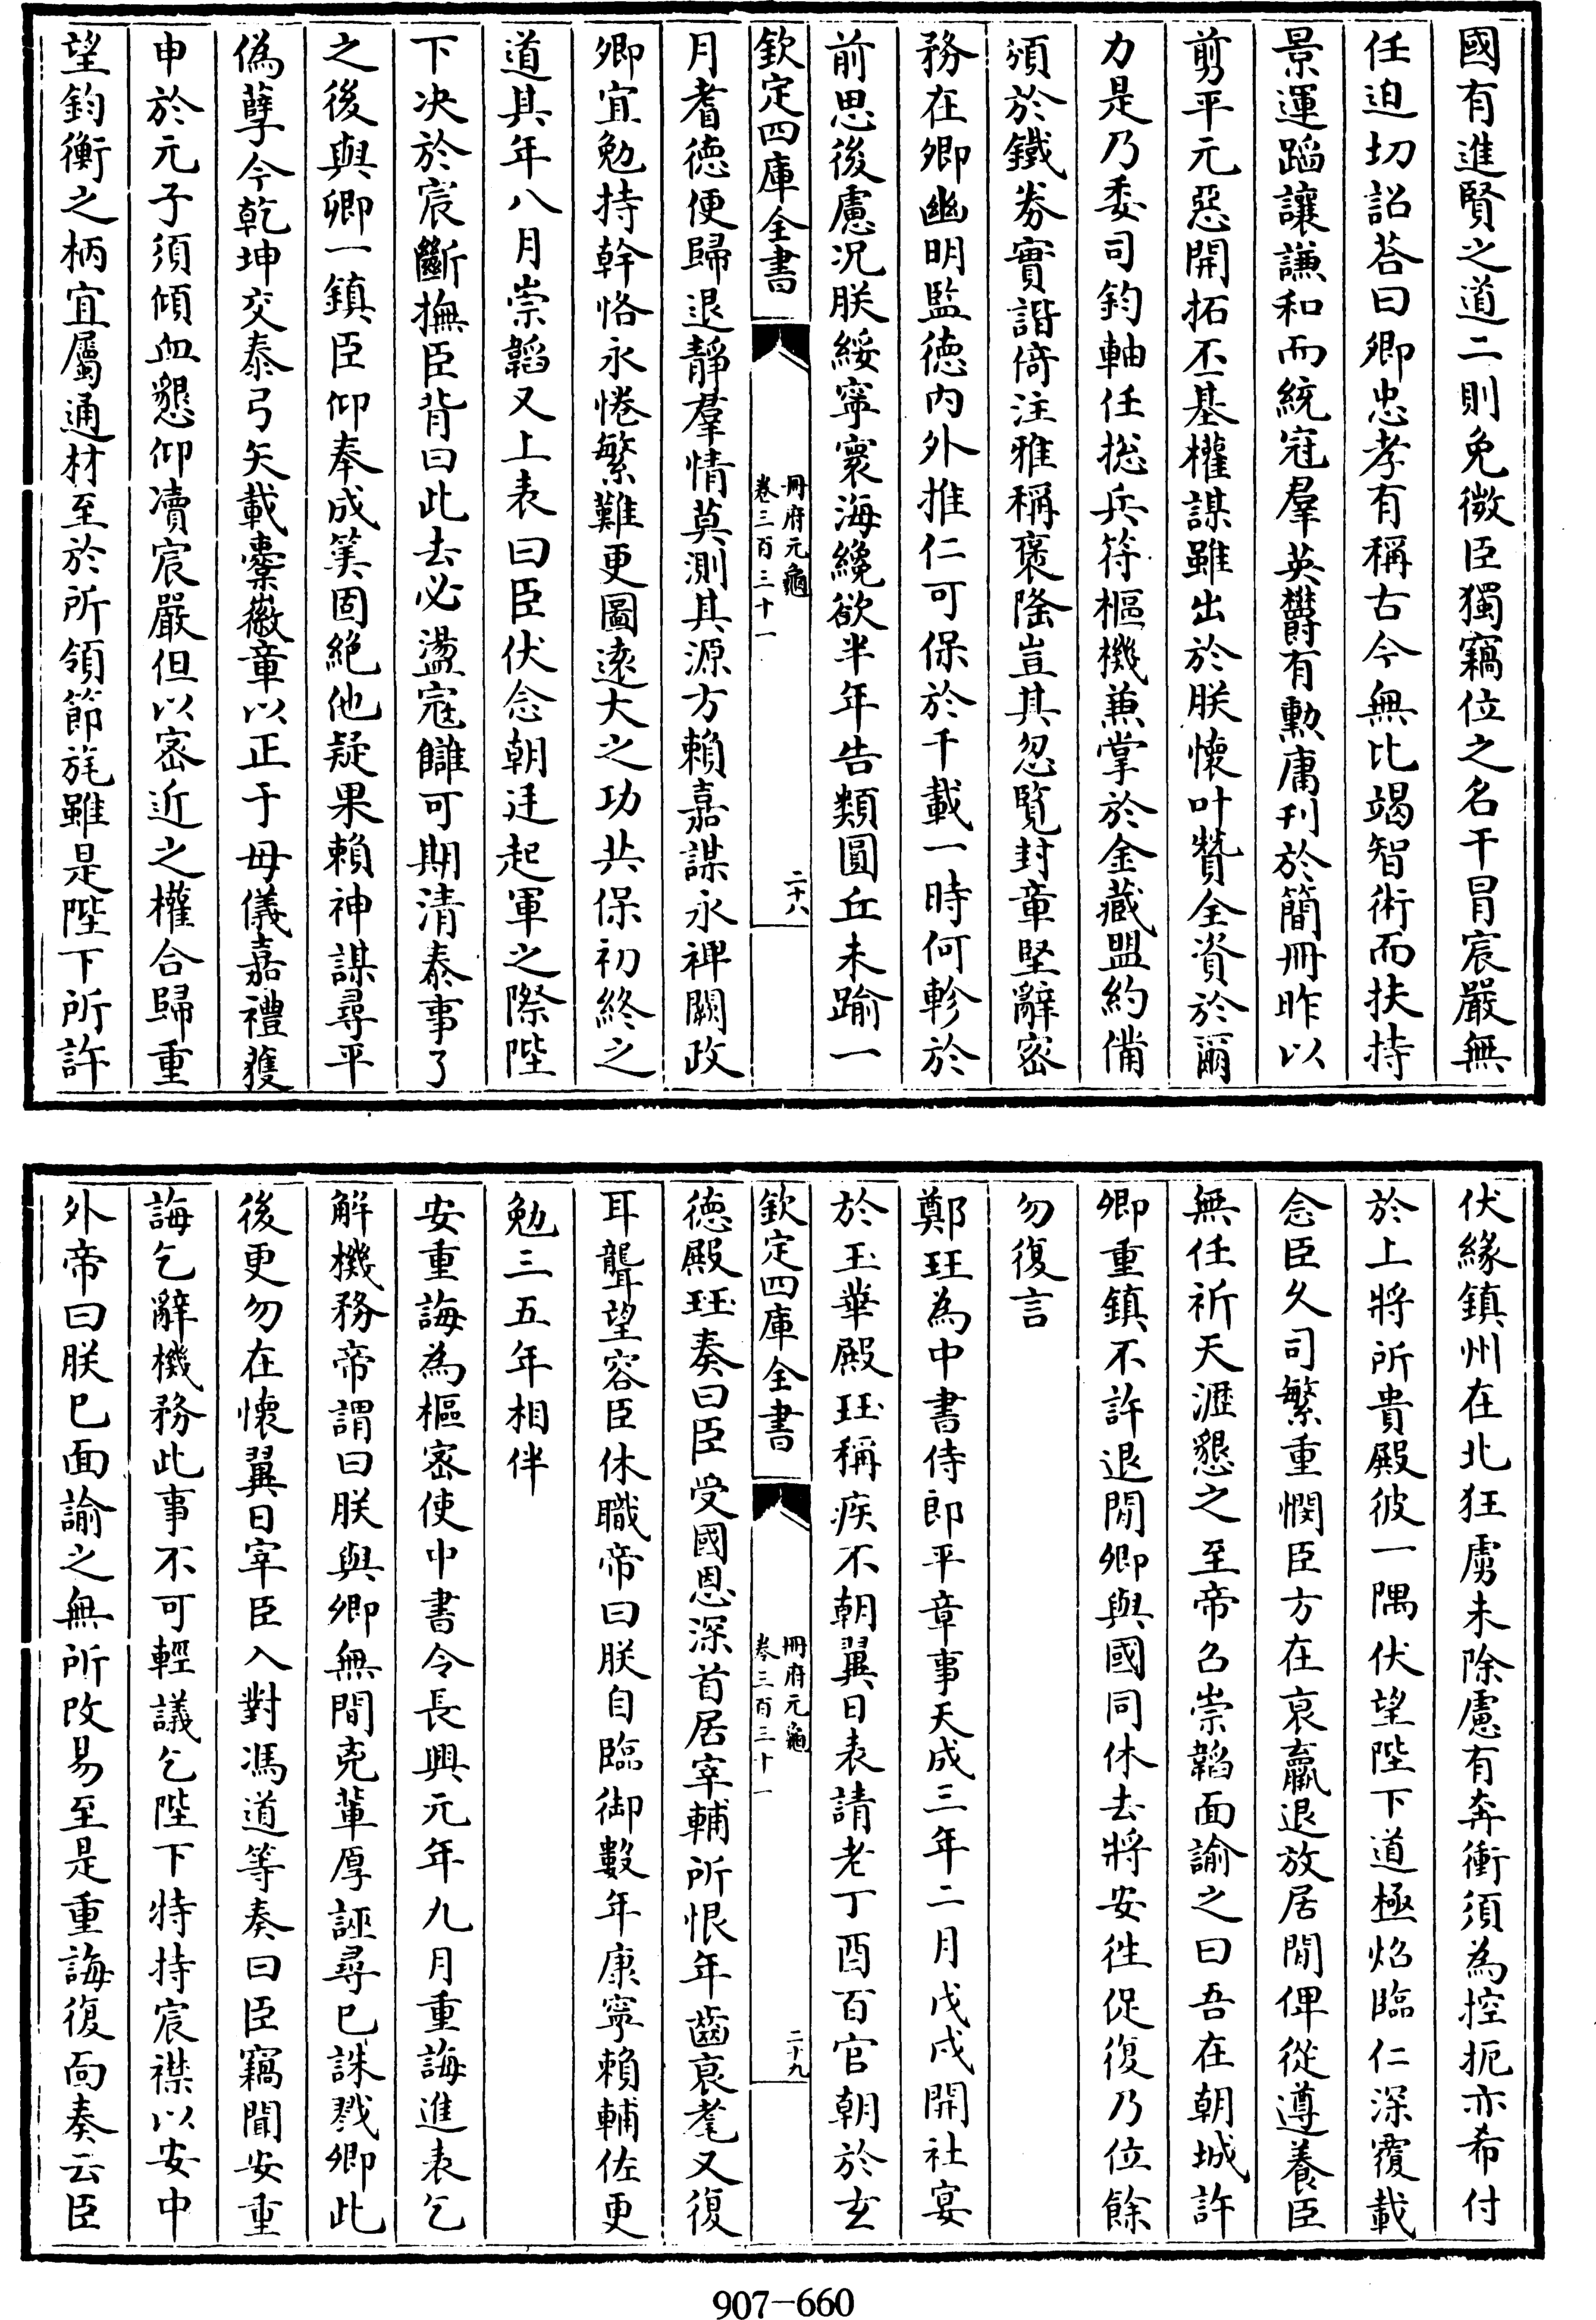 國有進賢之道二則免微臣獨竊位之名干冒宸嚴無
任迫切詔荅曰卿忠孝有稱古今無比竭智術而扶持
景運蹈讓謙和而統冠羣英欝有勲庸刋於簡冊昨以
剪平元惡開拓丕基權謀雖出於朕懷叶贊全資於爾
力是乃委司鈞軸任捴兵符樞機兼掌於金藏盟約備
頒於鐵券實諧倚注雅稱褒隆豈其忽覧封章堅辭宻
務在卿幽明監徳内外推仁可保於千載一時何軫於
前思後慮况朕綏寜寰海纔欲半年告類圓丘未踰一
欽定四庫全書
冊府元龜
卷三百三十一
二十八
月耆徳便歸退靜羣情莫測其源方賴嘉謀永裨闕政
卿宜勉持幹恪永惓繁難更圖逺大之功共保初終之
道其年八月崇韜又上表曰臣伏念朝廷起軍之際陛
下决於宸斷撫臣背曰此去必盪寇讎可期清泰事了
之後與卿一鎮臣仰奉成筭固絶他疑果賴神謀尋平
偽孽今乾坤交泰弓矢載櫜徽章以正于母儀嘉禮獲
申於元子須傾血懇仰凟宸嚴但以宻近之權合歸重
望鈞衡之柄宜屬通材至於所領節旄雖是陛下所許
伏緣鎮州在北狂虜未除慮有奔衝須為控扼亦希付
於上將所貴殿彼一隅伏望陛下道極焰臨仁深覆載
念臣久司繁重憫臣方在衰羸退放居閒俾從遵養臣
無任祈天瀝懇之至帝召崇韜面諭之曰吾在朝城許
卿重鎮不許退閒卿與國同休去將安徃促復乃位餘
勿復言
鄭珏為中書侍郎平章事天成三年二月戊戌開社宴
於玉華殿珏稱疾不朝翼日表請老丁酉百官朝於玄
欽定四庫全書
冊府元龜
卷三百三十一
二十九
徳殿珏奏曰臣受國恩深首居宰輔所恨年齒衰耄又復
耳聾望容臣休職帝曰朕自臨御數年康寧賴輔佐更
勉三五年相伴
安重誨為樞宻使中書令長興元年九月重誨進表乞
解機務帝謂曰朕與卿無間克輩厚誣尋已誅戮卿此
後更勿在懷翼日宰臣入對馮道等奏曰臣竊聞安重
誨乞辭機務此事不可輕議乞陛下特持宸襟以安中
外帝曰朕已面諭之無所改易至是重誨復面奏云臣
907-660